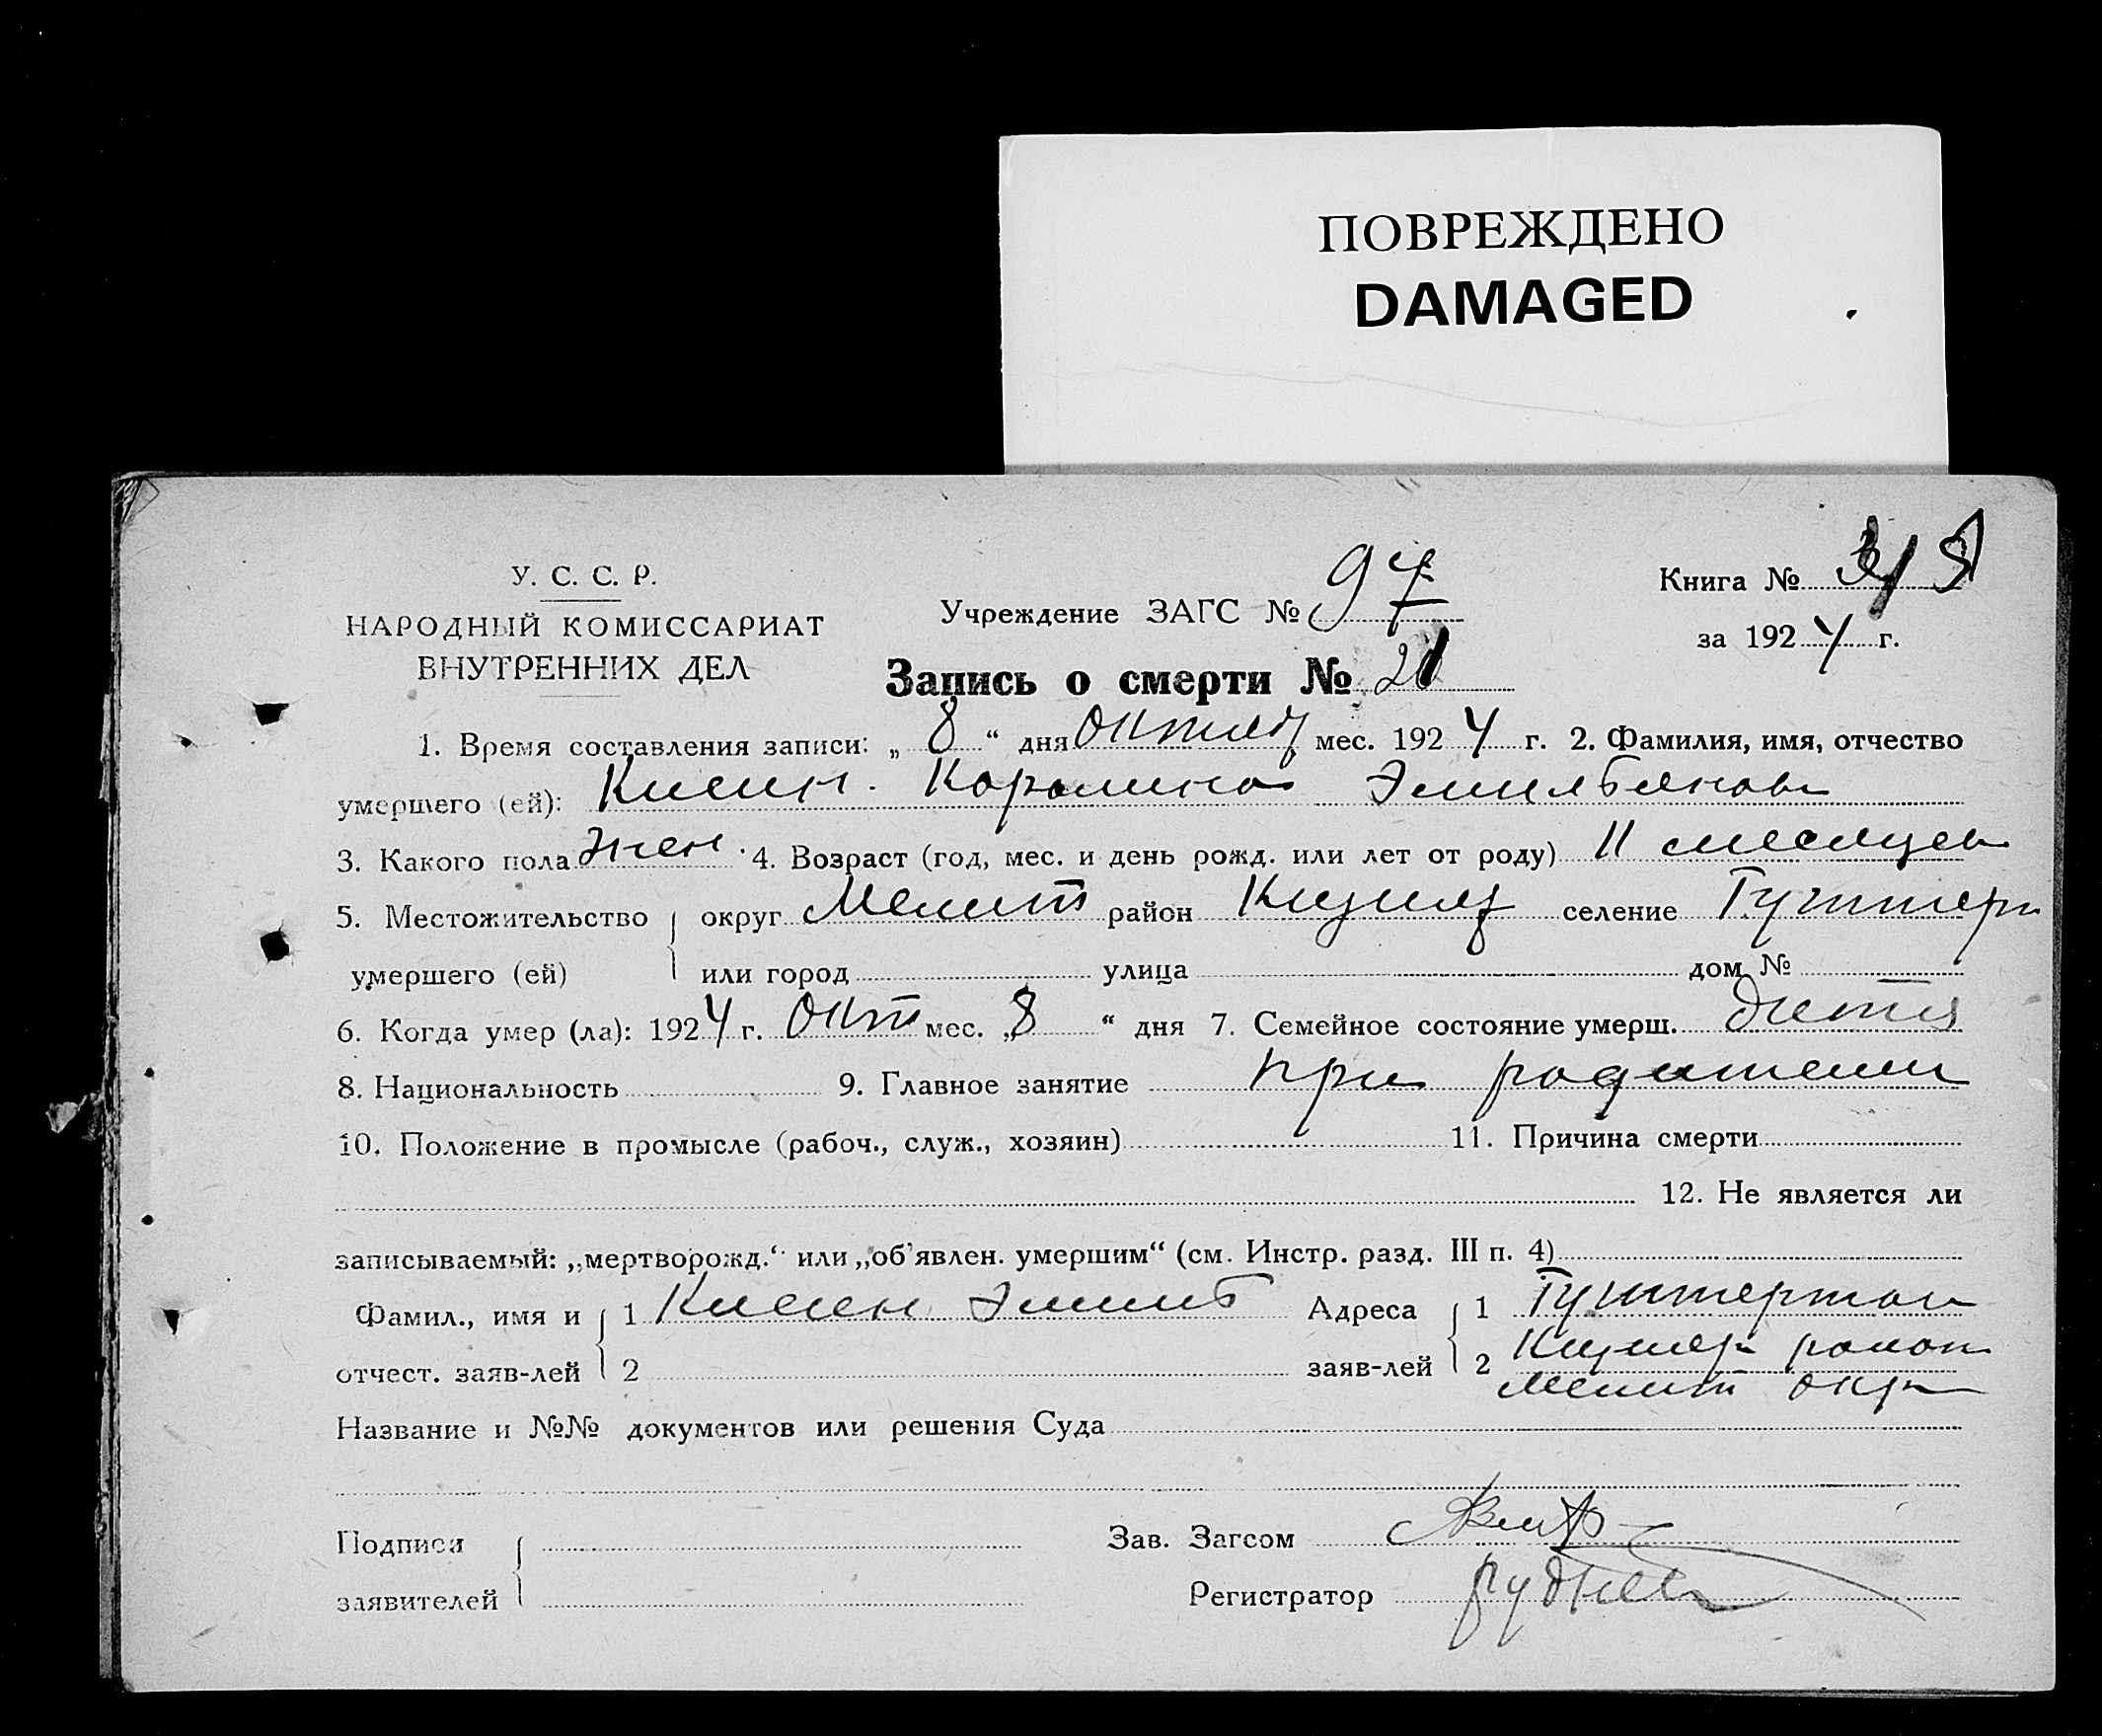 ПОВРЕЖДЕНО
DAMAGED
У. С. С. Р.
НАРОДНЫЙ КОМИССАРИАТ
ВНУТРЕННИХ ДЕЛ
Учреждение ЗАГС № 97
Книга №
за 1924 г.
Запись о смерти № 21
1. Время составления записи: „ 8 “ дня октяб мес. 1924 г. 2. Фамилия, имя, отчество
умершего (ей): Каролина
3. Какого пола жен. 4. Возраст (год, мес. и день рожд. или лет от роду) 11 месяцев
5. Местожительство округ Мелит район селение
умершего (ей) или город улица дом №
6. Когда умер (ла): 1924 г. окт мес. „ 8 “ дня 7. Семейное состояние умерш. дитя
8. Национальность 9. Главное занятие при родители
10. Положение в промысле (рабоч., служ., хозяин) 11. Причина смерти
12. Не является ли
записываемый: „мертворожд.“ или „об'явлен. умершим“ (см. Инстр. разд. III п. 4)
Фамил., имя и 1 Эмиль Адреса 1
отчест. заяв-лей 2 заяв-лей 2 район
Мелит окр
Название и №№ документов или решения Суда
Подписи Зав. Загсом
заявителей Регистратор